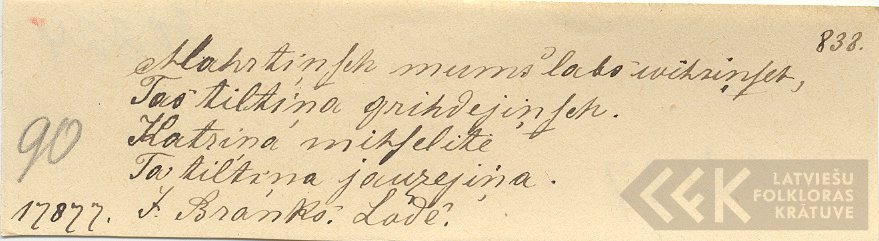 838.
Mahrtinsch mums labs wihrinsch,
Tas tiltina grihdejinsch.
Katrina mihselite
Ta tiltina jauzejina.
90
17877. J. Brankš. Lādē.
LATVIEŠU
FOLKLORAS
KRĀTUVE